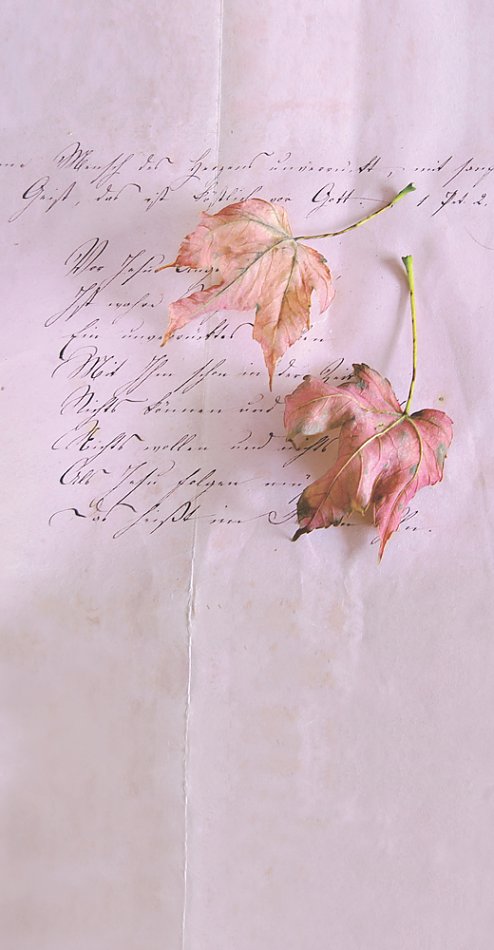 Mensch des Herzens unverrückt, mit sanf
Geist, das ist köstlich vor Gott. 1 Pet. 2.
Vor Jesus Auge
Ist wahre
Ein unverrücktes en
Mit Ihm schon in der Zeit
Nichts können und
Nichts wollen und nichts
Als Jesu folgen
Das heißt im